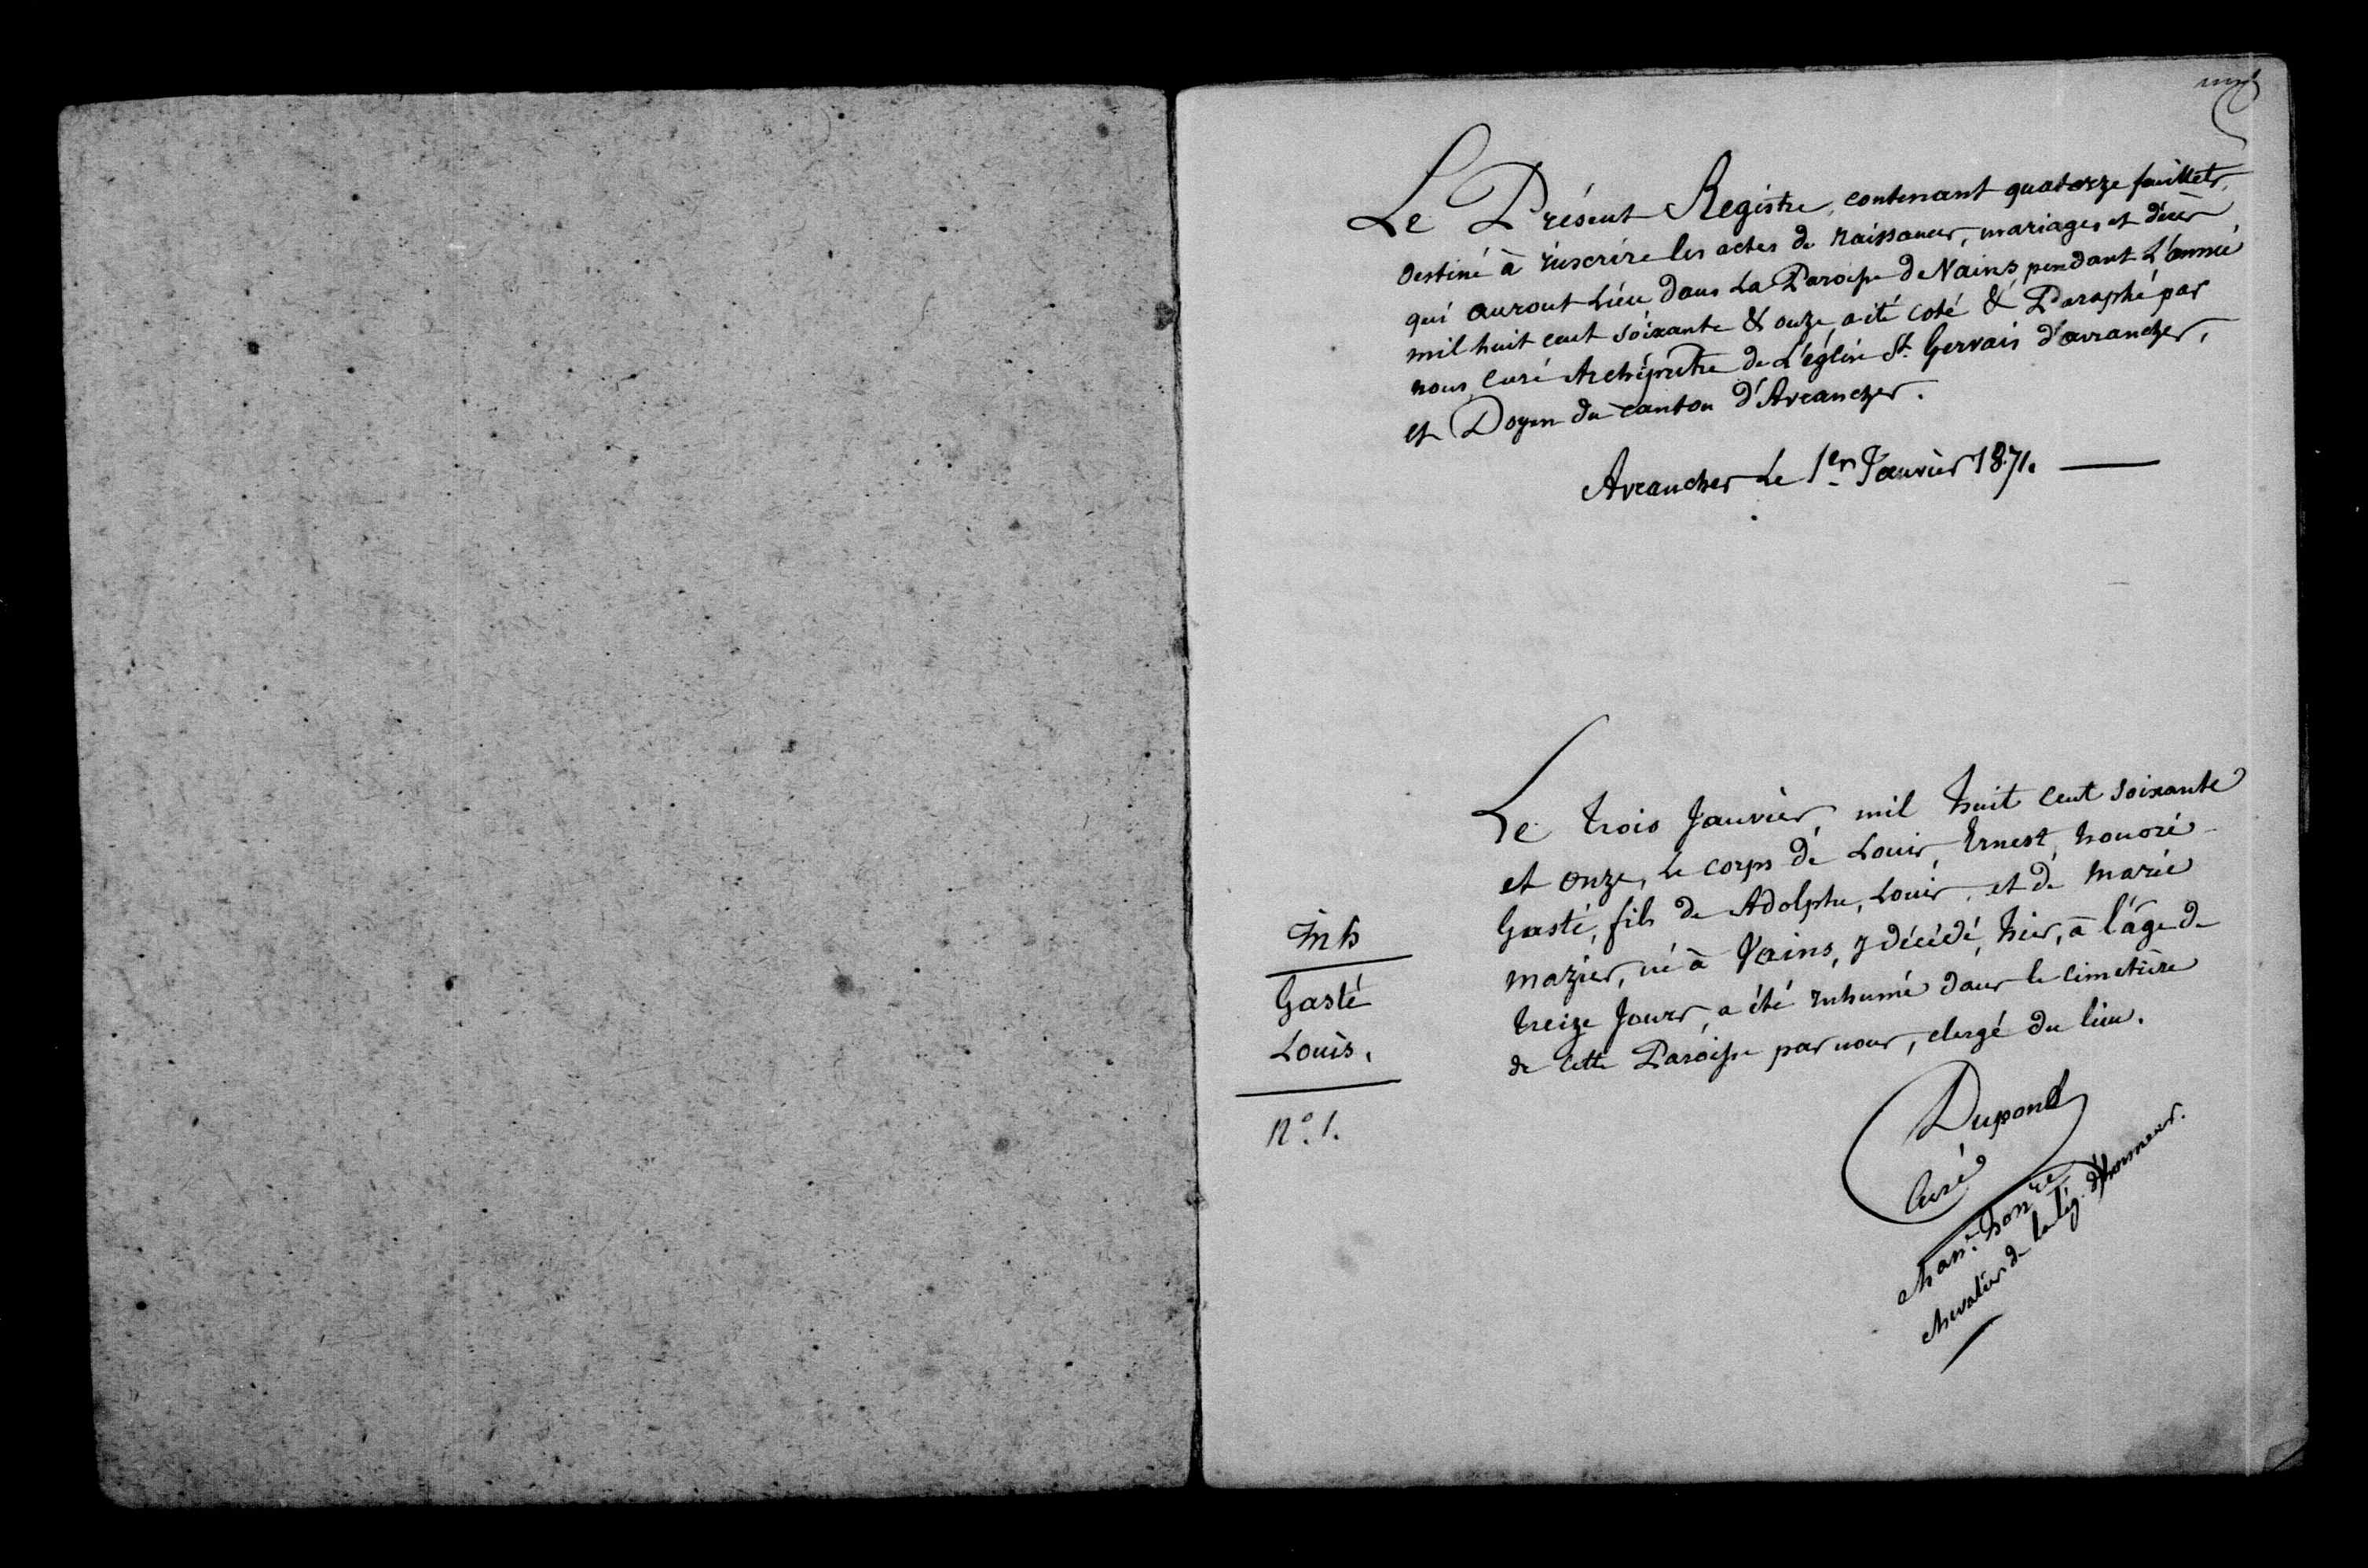 Le Présent Registre, contenant quatorze feuillets,
destiné à inscrire les actes de naissances, mariages et décès
qui auront lieu dans la Paroisse de Vains pendant L'année
mil huit cent soixante & onze, a été coté & Paraphé par
nous, curé Archiprêtre de L'église St. Gervais d'avranches,
et Doyen du canton d'Avranches.
Avranches Le 1er Janvier 1871.
Le trois Janvier, mil huit cent soixante
et onze, le corps de Louis, Ernest, honoré
Gasté, fils de Adolphe, Louis, et de marie
mazier, né à Vains, y décédé, hier, à l'âge de
treize Jours, a été inhumé dans le cimetière
de cette Paroisse par nous, clergé du lieu.
Inh
Gasté
Louis.
N°. 1.
Dupont
Curé
chan. honre
chevalier de la lég. d'honneur.